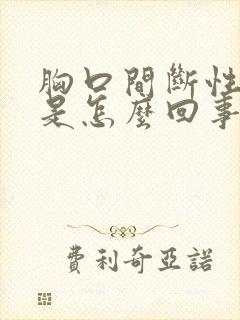 胸口間斷性
是怎麼回事
費利奇亞諾